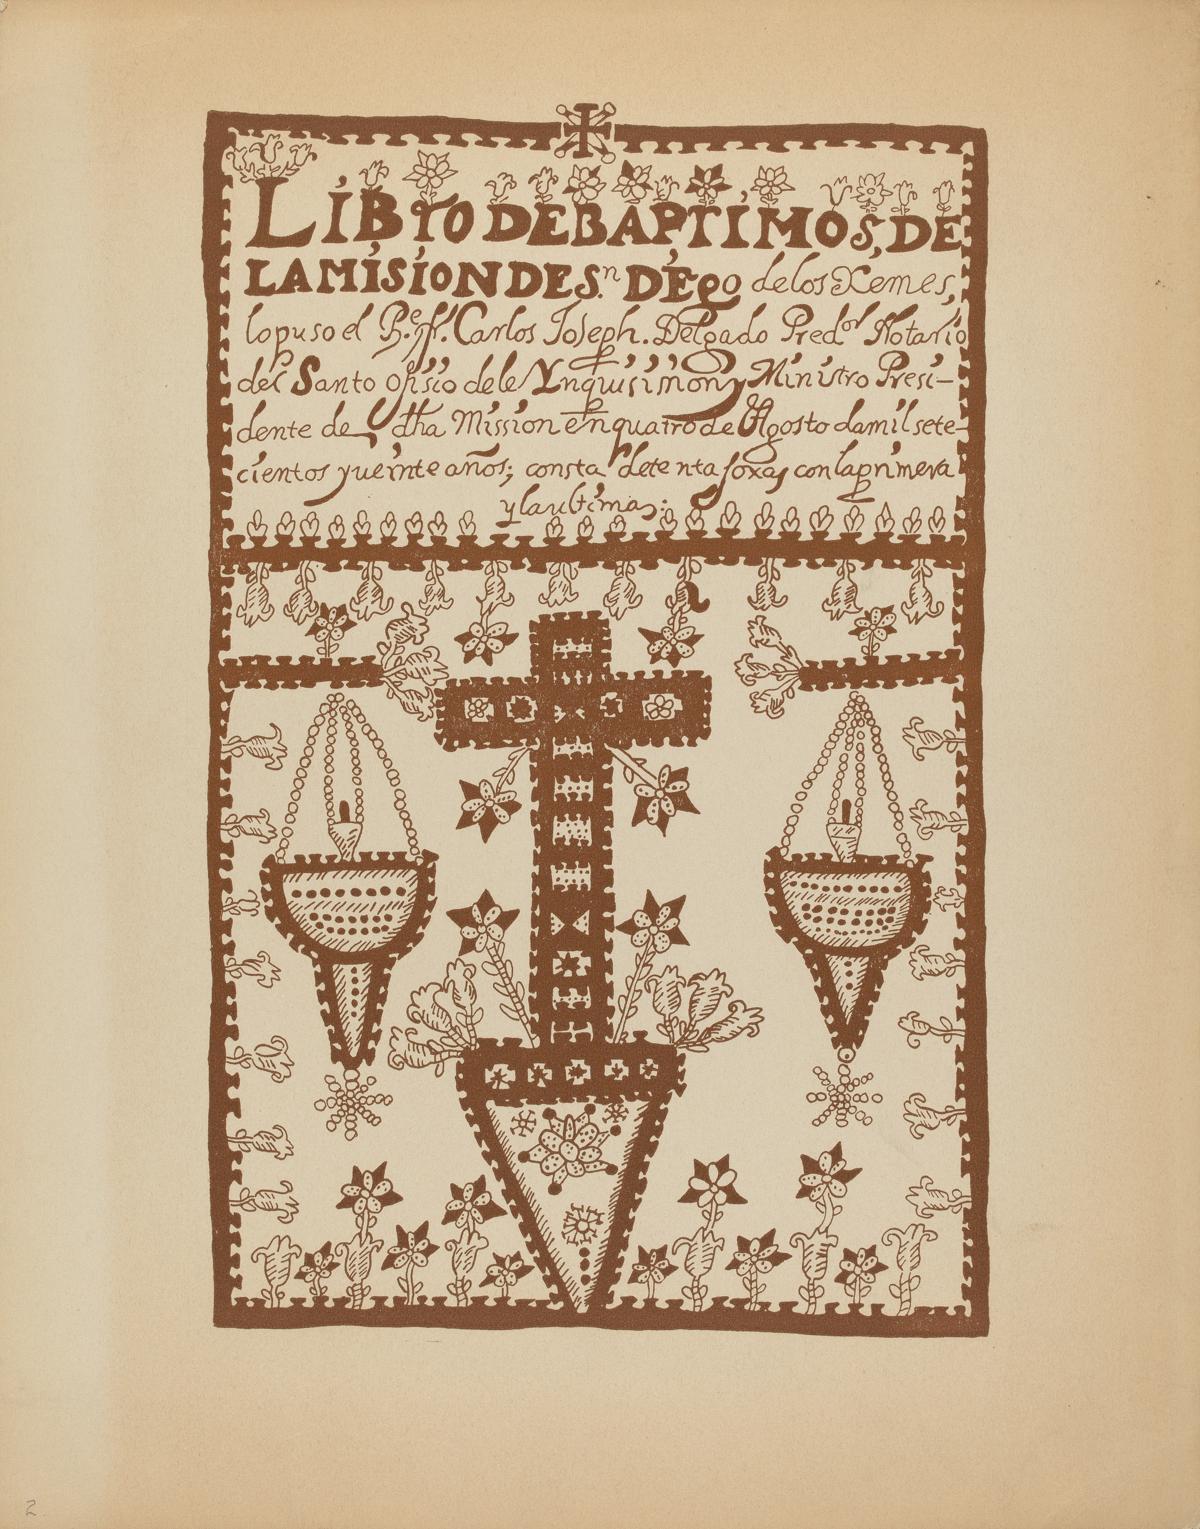 LIBro DE BAPTIMOS, DE
LA MISION DE S.n DIEgo de los Xemes,
lo puso el P.e fr. Carlos Joseph. Delgado Pred.or Notario
del Santo Ofisio de le Ynquisision y Ministro Presi-
dente de dha Mission en quatro de Agosto da mil sete-
cientos y ueinte años; consta de tenta foxas con la primera
y la ultima;
2